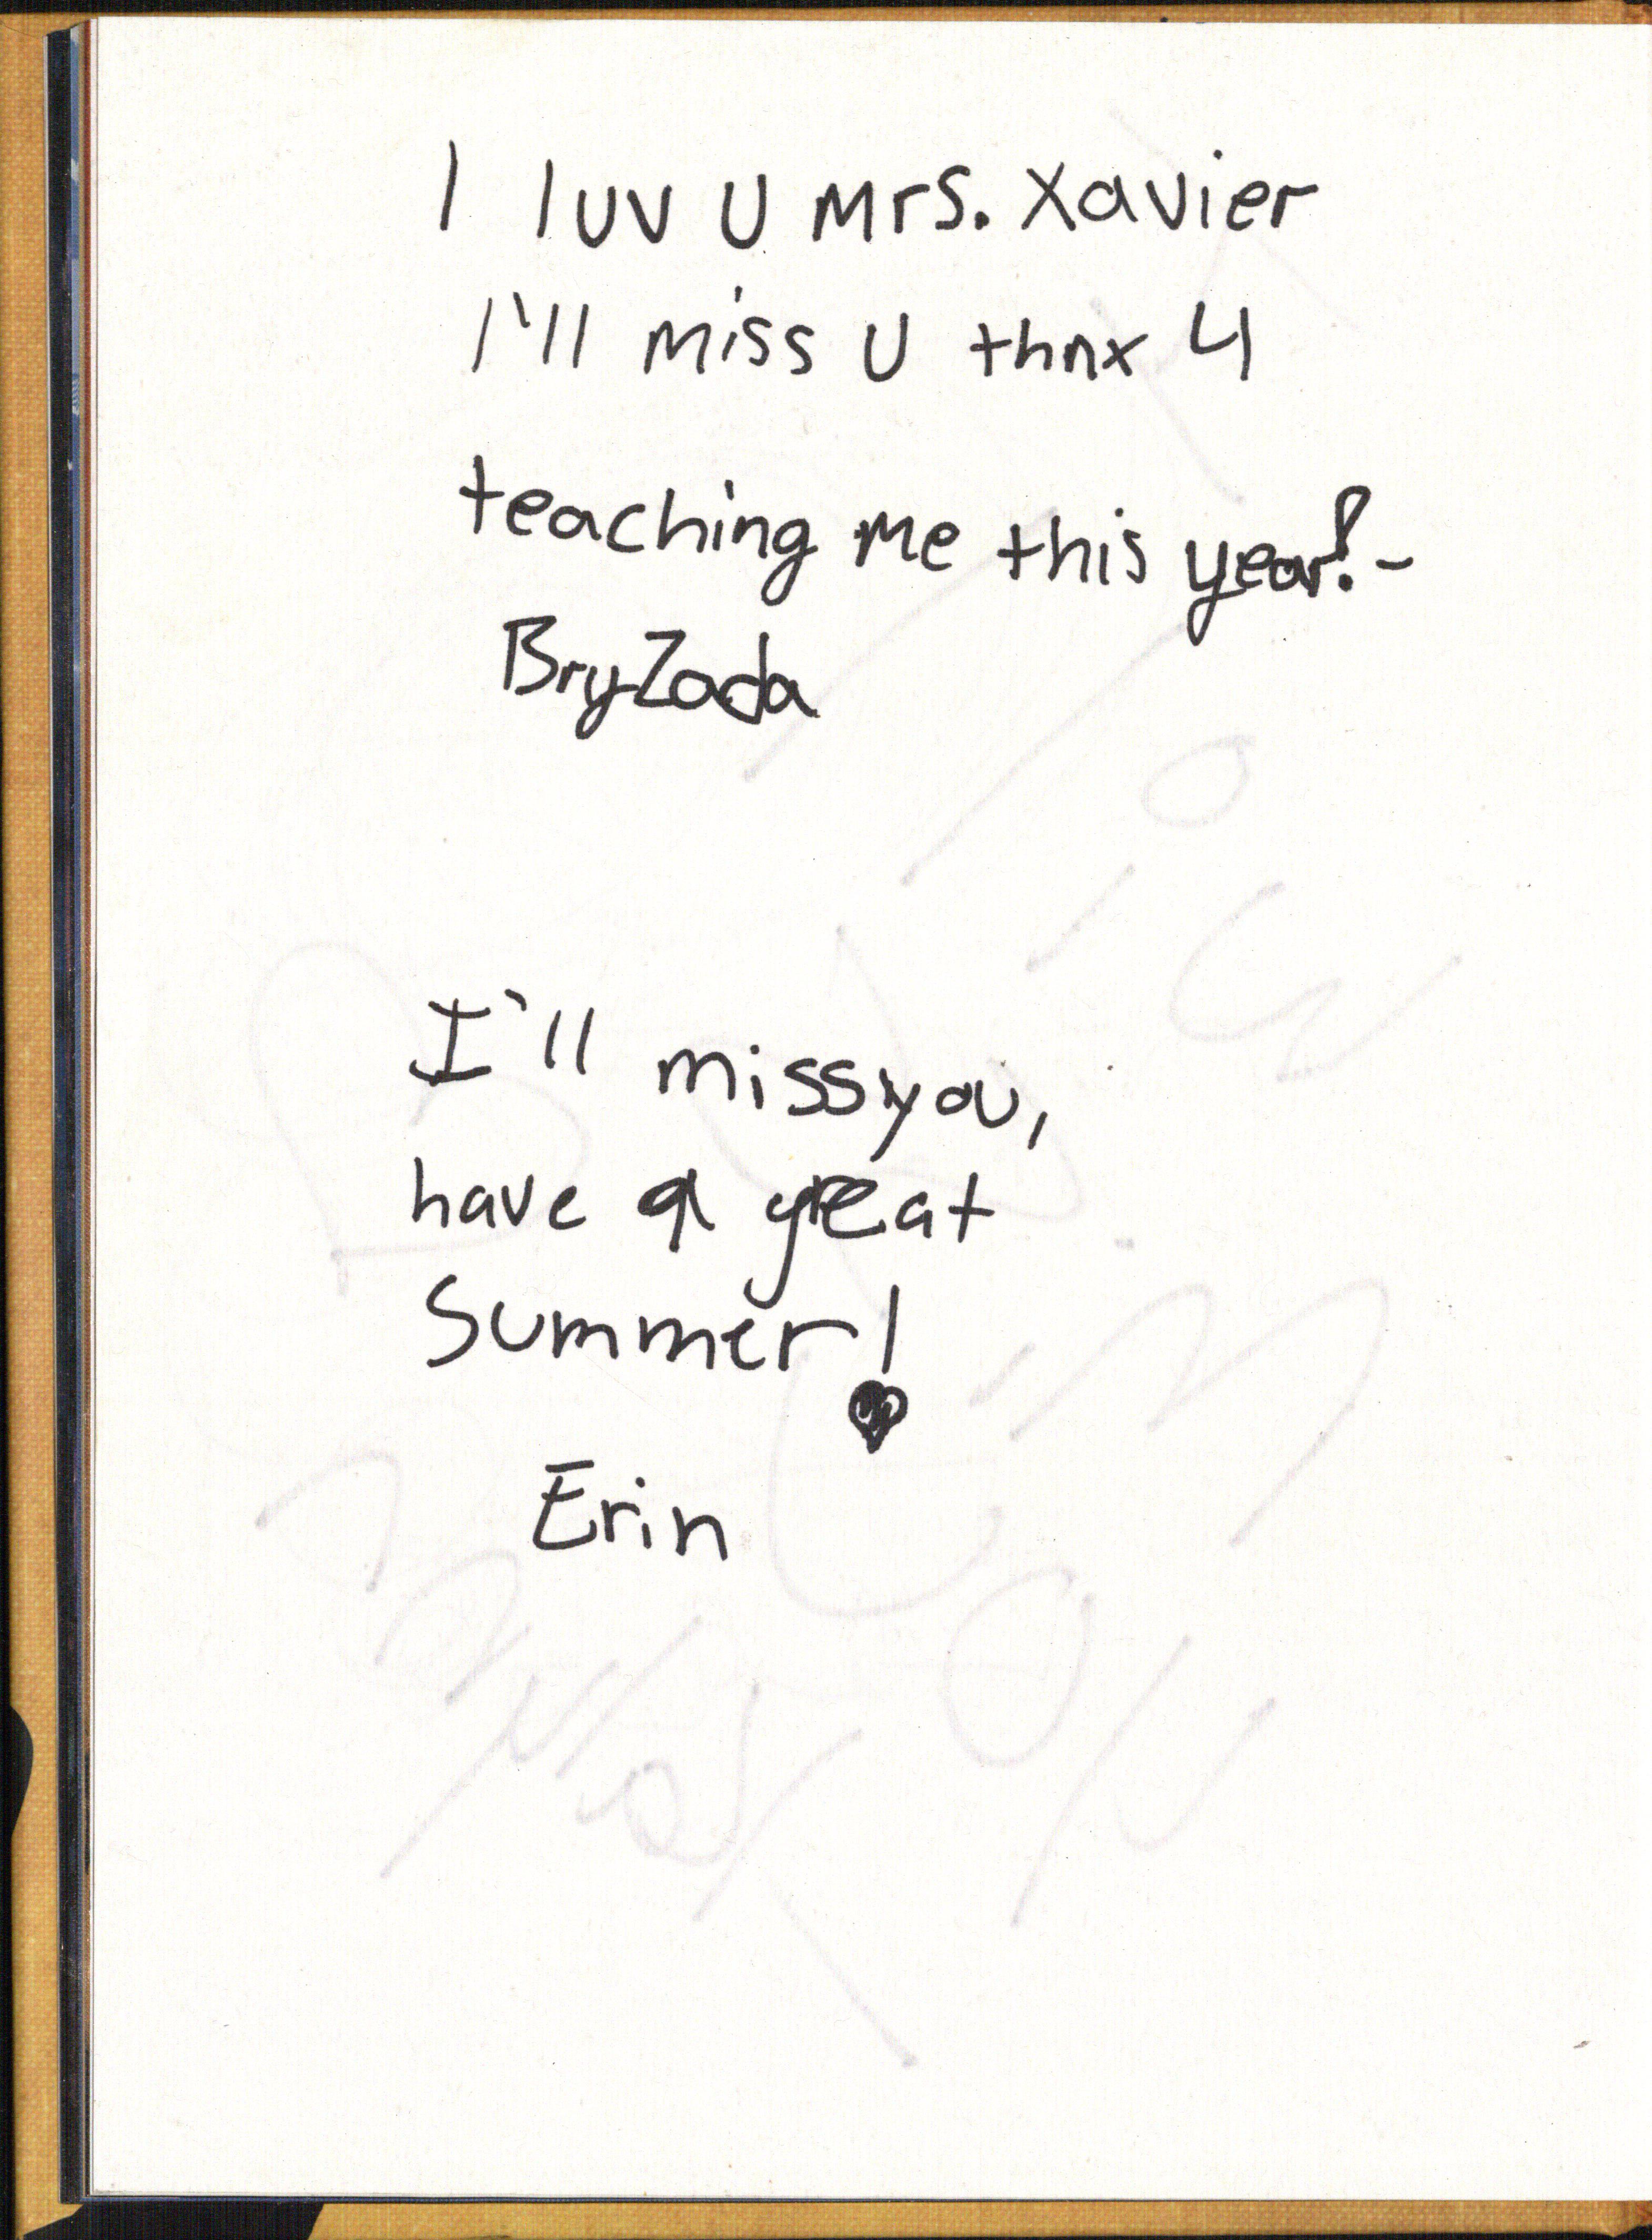 I luv U Mrs. Xavier
I'll miss U thnx 4
teaching me this year! -
BryZada
I'll miss you,
have a great
Summer!
Erin